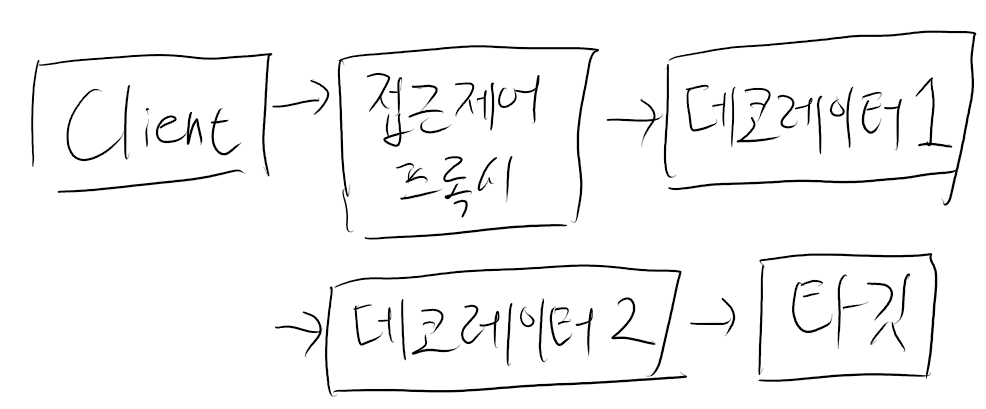 Client
접근제어
프록시
데코레이터 1
데코레이터 2
타깃